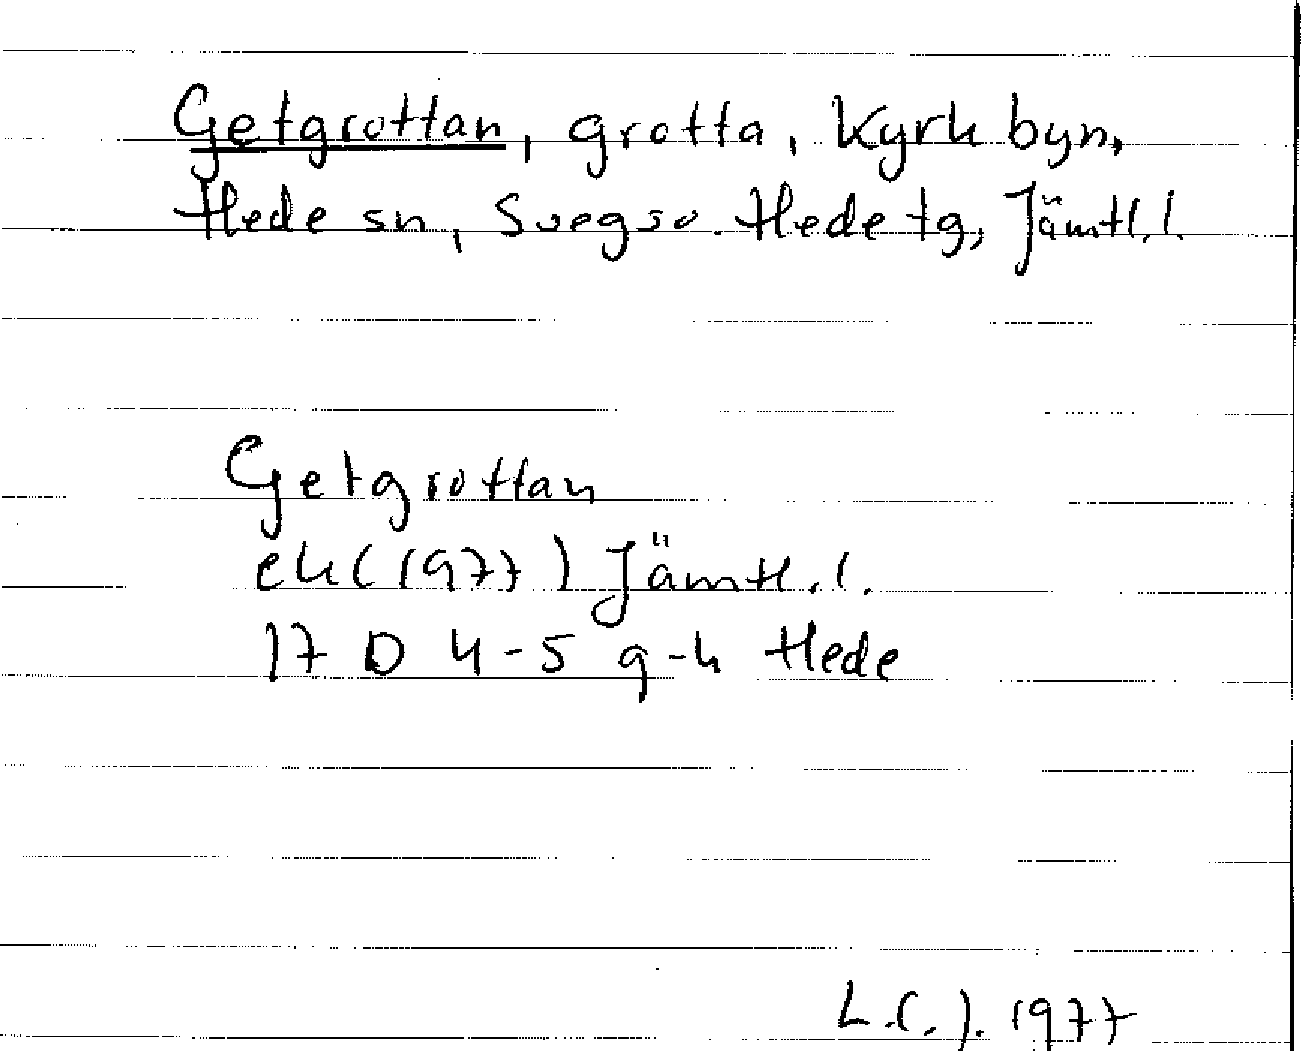 Getgrottan, grotta, Kyrkbyn,
Hede sn, Svegso. Hede tg, Jämtl. l.
Getgrottan
ek (1977) Jämtl. l.
17 D 4-5 g-h Hede
L.C.J. 1977